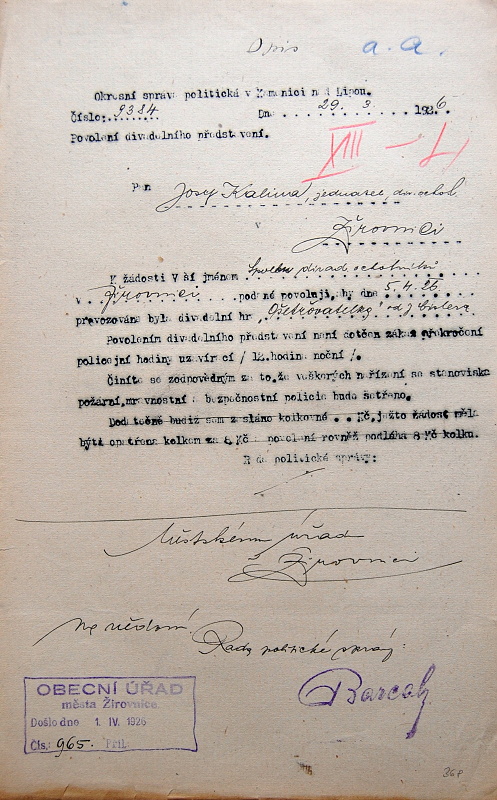 Opis
a. a.
Okresní správa politická v Kamenici nad Lipou.
Číslo: 9384 Dne 29. 3. 1926.
Povolení divadelního představení.
XIII - 4
Pan
Josef Kalina, jednatel, div. ochot.
v
Žirovnici
K žádosti Vaší jménem Spolku divad. ochotníků
v Žirovnici podané povoluji, aby dne 5.4.26
provozována byla divadelní hra "Ošetřovatelka" od J.
Povolením divadelního představení není dotčen zákaz překročení
policejní hodiny uzavírací / 12. hodina noční /.
Činíte se zodpovědným za to, že veškerých nařízení se stanoviska
požární, mravnostní a bezpečnostní policie bude šetřeno.
Dodatečně budiž sem zasláno kolkovné . . Kč, ježto žádost měla
býti opatřena kolkem za 5 Kč a povolení rovněž podléhá 8 Kč kolku.
Rada politické správy:
Městskému úřadu
Žirovnici
Na vědomí.
Rada politické správy:
OBECNÍ ÚŘAD
města Žirovnice
Došlo dne 1. IV. 1926
Čís.: 965. Příl.
368